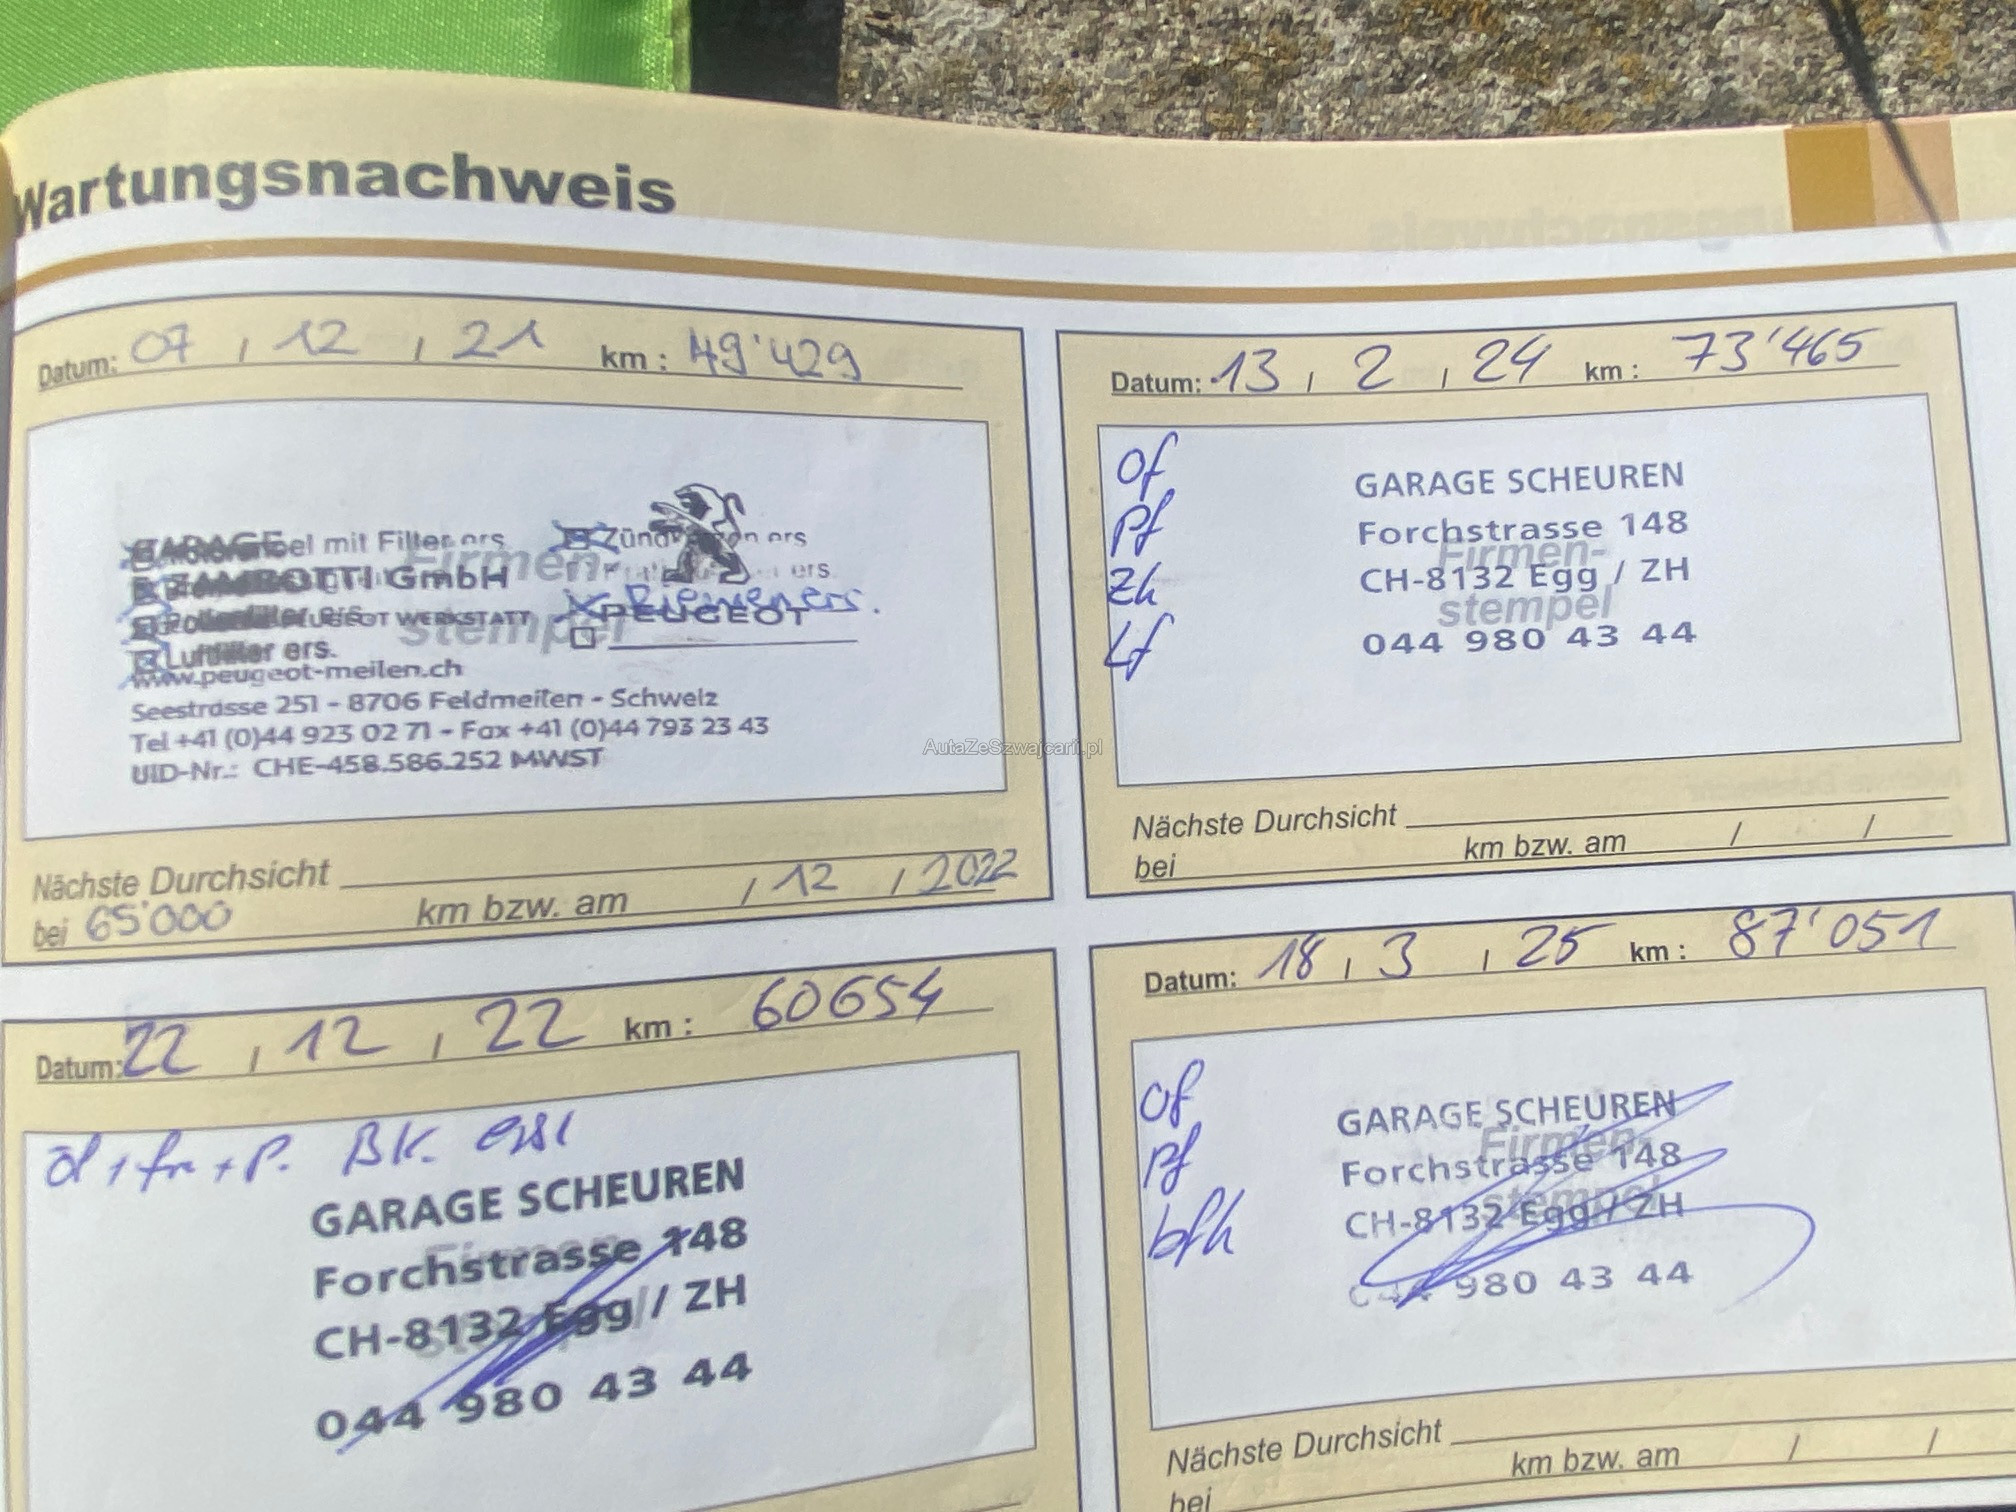 Wartungsnachweis
Datum: 07 / 12 / 21 km: 49'429
GARAGE
mit Filter ers.
ZAMBOTTI GmbH
Firmen-
stempel
PEUGEOT WERKSTATT
PEUGEOT
Riemen ers.
Luftfilter ers.
www.peugeot-meilen.ch
Seestrasse 251 - 8706 Feldmeilen - Schweiz
Tel +41 (0)44 923 02 71 - Fax +41 (0)44 793 23 43
UID-Nr.: CHE-458.586.252 MWST
Nächste Durchsicht
bei 65'000 km bzw. am / 12 / 2022
Datum: 22 / 12 / 22 km: 60654
BK.
GARAGE SCHEUREN
Forchstrasse 148
CH-8132 Egg / ZH
044 980 43 44
Datum: 13 / 2 / 24 km: 73'465
of
pf
Zk
Lf
GARAGE SCHEUREN
Forchstrasse 148
Firmen-
CH-8132 Egg / ZH
stempel
044 980 43 44
Nächste Durchsicht
bei km bzw. am / /
Datum: 18 / 3 / 25 km: 87'051
of
pf
bfk
GARAGE SCHEUREN
Firmen-
Forchstrasse 148
stempel
CH-8132 Egg / ZH
044 980 43 44
Nächste Durchsicht
bei km bzw. am / /
AutaZeSzwajcarii.pl